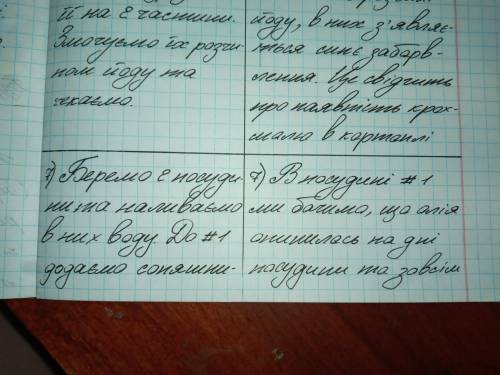 її на 2 частини.
Змочуємо їх розчи-
ном йоду та
чекаємо.
йоду, в них з'являє-
ться синє забарв-
лення. Це свідчить
про наявність крох-
малю в картоплі
7) Беремо 2 посуди-
ни та наливаємо
в них воду До #1
додаємо соняшни-
7) В посудині #1
ми бачимо, що олія
опинилась на дні
посудини та зовсім